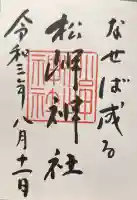 なせば成る
松岬神社
令和三年八月十一日